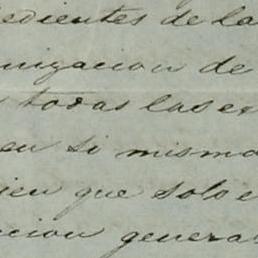 edientes de la
nizacion de
todas las ex
en si mismo
ien que solo e
cion genera